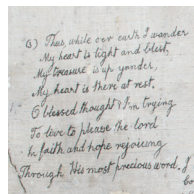 3) Thus, while oer earth I wander
My heart is light and blest,
My treasure is up yonder,
My heart is there at rest.
O blessed thought! I'm trying
To love to please the lord
In faith and hope rejoicing
Through His most precious word.